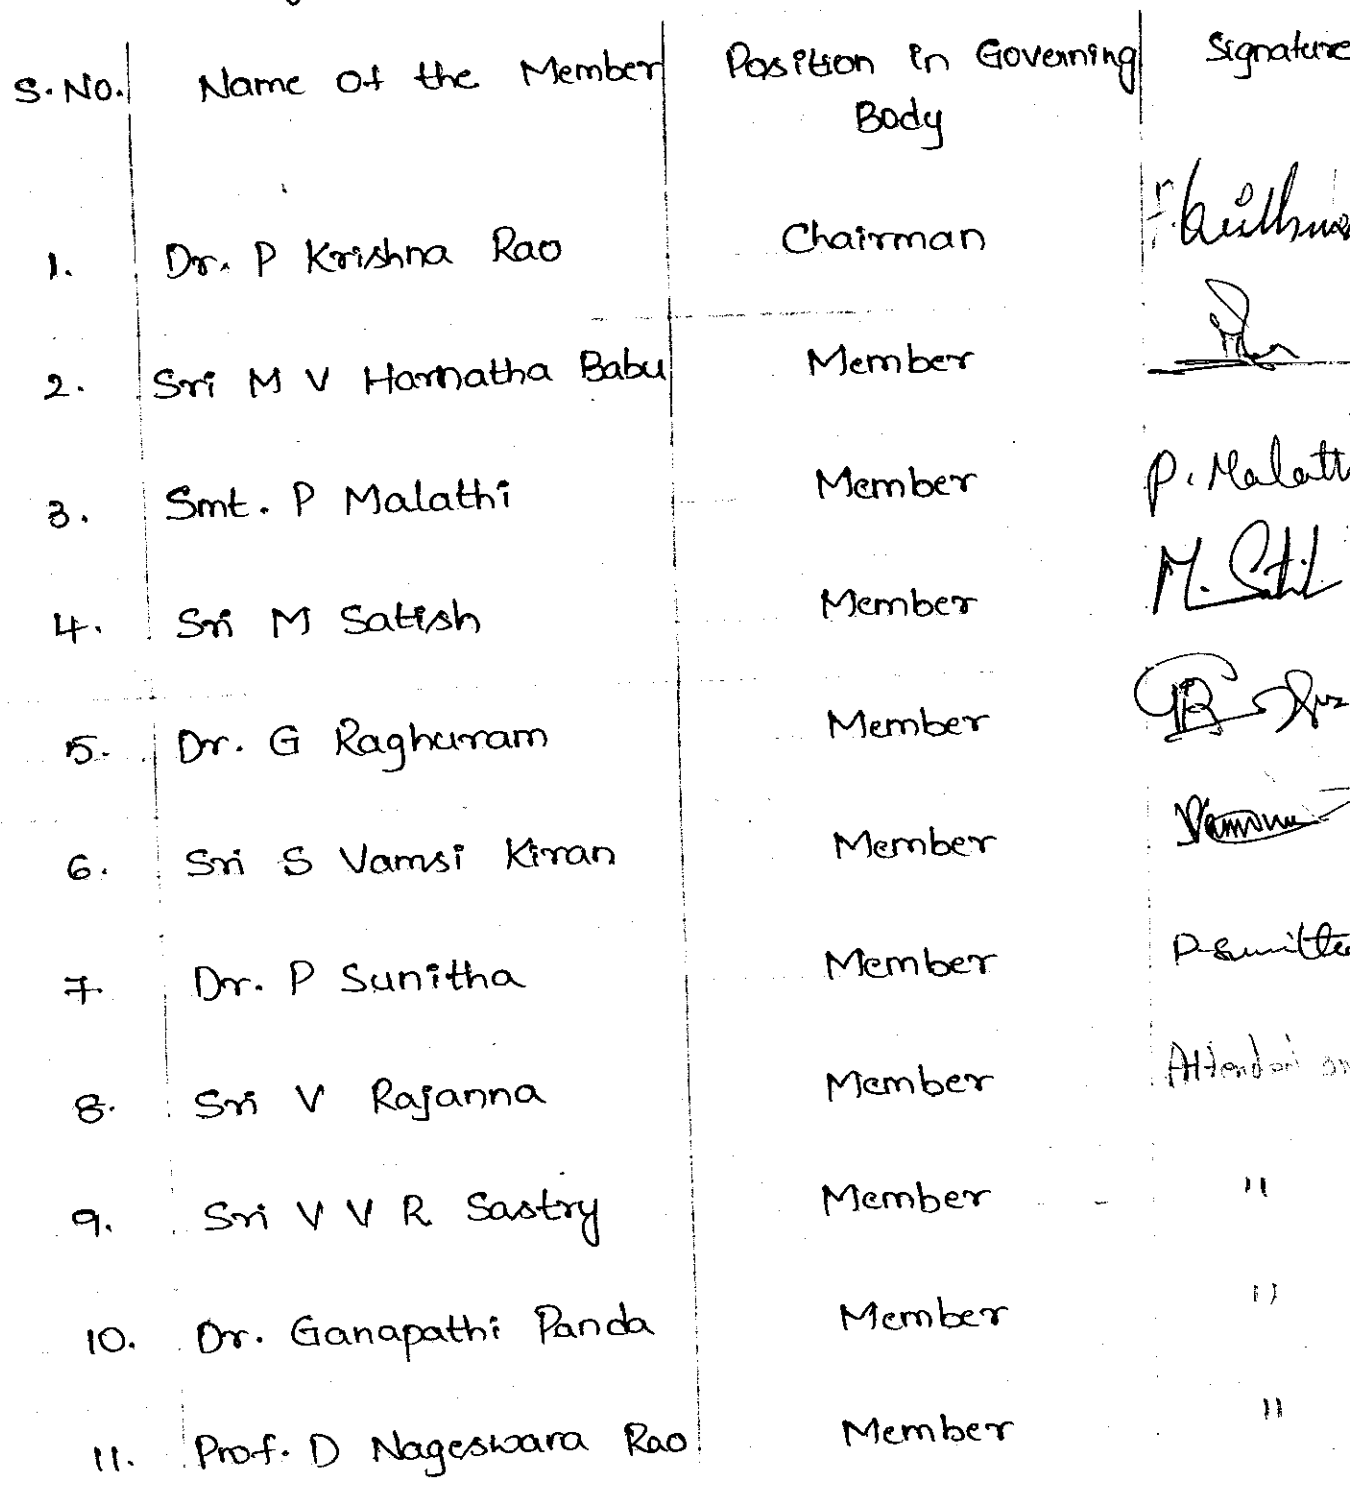 S.No. Name of the Member Position in Governing Signature
Body
1. Dr. P Krishna Rao Chairman
2. Sri M V Harnatha Babu Member
3. Smt. P Malathi Member P. Malath
4. Sri M Satish Member M. Satish
5. Dr. G Raghuram Member
6. Sri S Vamsi Kiran Member Vamsi
7. Dr. P Sunitha Member P Sunitha
8. Sri V Rajanna Member Attended on
9. Sri V V R Sastry Member - "
10. Dr. Ganapathi Panda Member "
11. Prof. D Nageswara Rao Member "